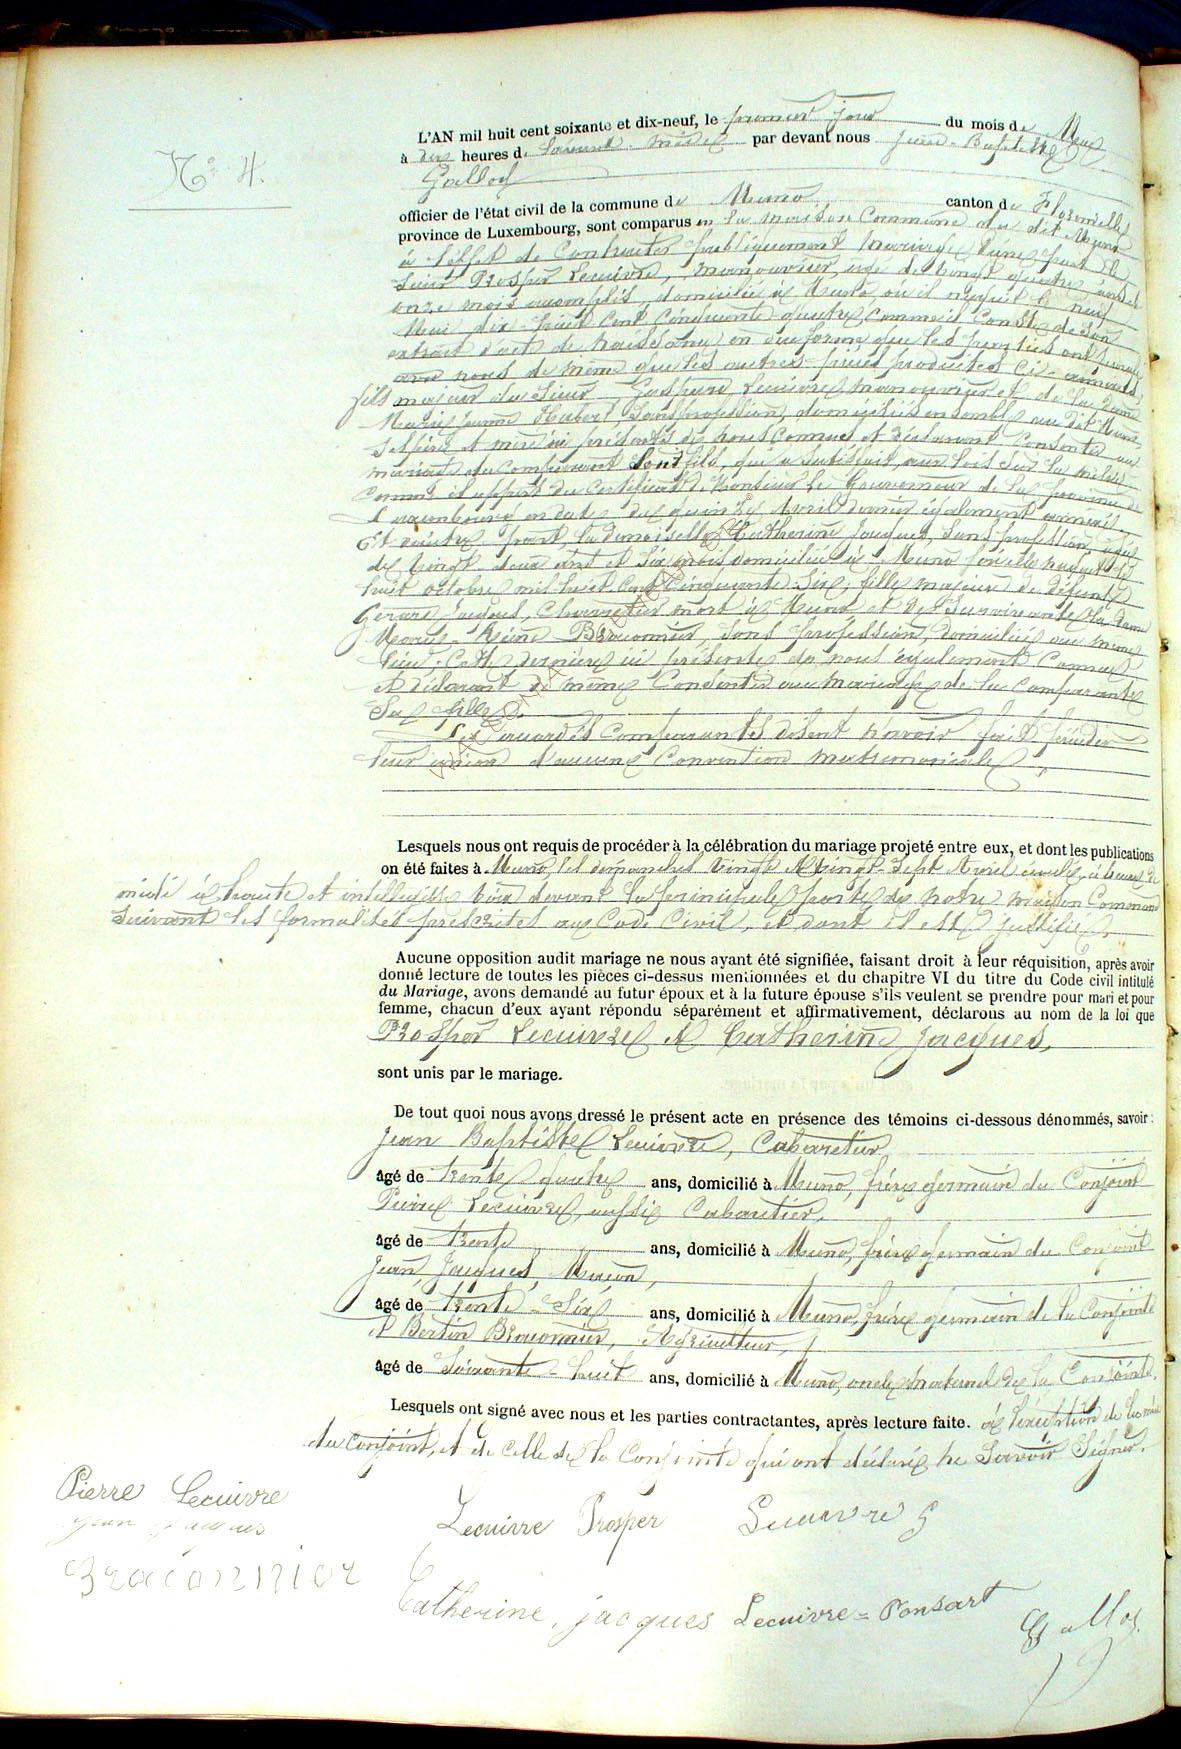 N° 4.
L'AN mil huit cent soixante et dix-neuf, le premier jour du mois de Mai
à dix heures de l'avant-midi par devant nous Jean-Baptiste
Galloy
officier de l'état civil de la commune de Muno canton de Florenville
province de Luxembourg, sont comparus en la maison Commune du dit Muno
à l'effet de Contracter publiquement mariage, d'une part le
Sieur Prosper Lecuivre, manouvrier, âgé de vingt quatre ans et
onze mois accomplis, domicilié à Muno, où il naquit le neuf
Mai dix-huit Cent Cinquante-quatre, comme il Conste de Son
extrait d'acte de naissance en due forme que les parties ont
nous de même que les autres pièces produites ci-annexées,
fils majeur du Sieur Gaspard Lecuivre, manouvrier et de la Dame
Marie Jeanne Habert, Sans profession, domiciliés ensemble au dit Muno,
Ses père et mère ici présents de nous Connus et déclarant Consentir au
mariage du Comparant leur fils, qui a Satisfait aux lois sur la milice
Comme il appert du Certificat de Monsieur le Gouverneur de la province de
Luxembourg en date du quinze Avril dernier également annexé.
Et d'autre part, la Demoiselle Catherine Jacques, Sans profession, âgée
de vingt-deux ans et Six mois domiciliée à Muno où elle naquit le
huit octobre mil huit Cent Cinquante-Six, fille majeure du défunt
Gérard Jacques, mort à Muno et de Survivante la Dame
Marie-Reine Braconnier, Sans profession, domiciliée au même
lieu; Cette dernière ici présente de nous également Connue
et déclarant de même Consentir au mariage de la Comparante
Sa fille.
Les quatre Comparants disent n'avoir fait précéder
leur union d'aucune Convention matrimoniale.
Lesquels nous ont requis de procéder à la célébration du mariage projeté entre eux, et dont les publications
on été faites à Muno, les dimanches vingt et vingt-Sept Avril écoulé, à heure de
midi à haute et intelligible voix devant la principale porte de notre maison Commune
Suivant les formalités prescrites au Code Civil, et dont il est justifié.
Aucune opposition audit mariage ne nous ayant été signifiée, faisant droit à leur réquisition, après avoir
donné lecture de toutes les pièces ci-dessus mentionnées et du chapitre VI du titre du Code civil intitulé
du Mariage, avons demandé au futur époux et à la future épouse s'ils veulent se prendre pour mari et pour
femme, chacun d'eux ayant répondu séparément et affirmativement, déclarons au nom de la loi que
Prosper Lecuivre et Catherine Jacques,
sont unis par le mariage.
De tout quoi nous avons dressé le présent acte en présence des témoins ci-dessous dénommés, savoir :
Jean Baptiste Lecuivre, Cabaretier
âgé de trente quatre ans, domicilié à Muno, frère germain du Conjoint
Pierre Lecuivre, aussi Cabaretier,
âgé de trente ans, domicilié à Muno, frère germain du Conjoint
Jean Jacques, Maçon,
âgé de trente-Six ans, domicilié à Muno, frère germain de la Conjointe
et Bertin Braconnier, Agriculteur,
âgé de Soixante-huit ans, domicilié à Muno, oncle maternel de la Conjointe.
Lesquels ont signé avec nous et les parties contractantes, après lecture faite. à l'exception de la mère
du Conjoint, et de celle de la Conjointe qui ont déclaré ne Savoir Signer.
Pierre Lecuivre
Jean Jacques
Lecuivre Prosper Lecuivre G
Braconnier
Catherine, jacques Lecuivre=Ponsart
Galloy